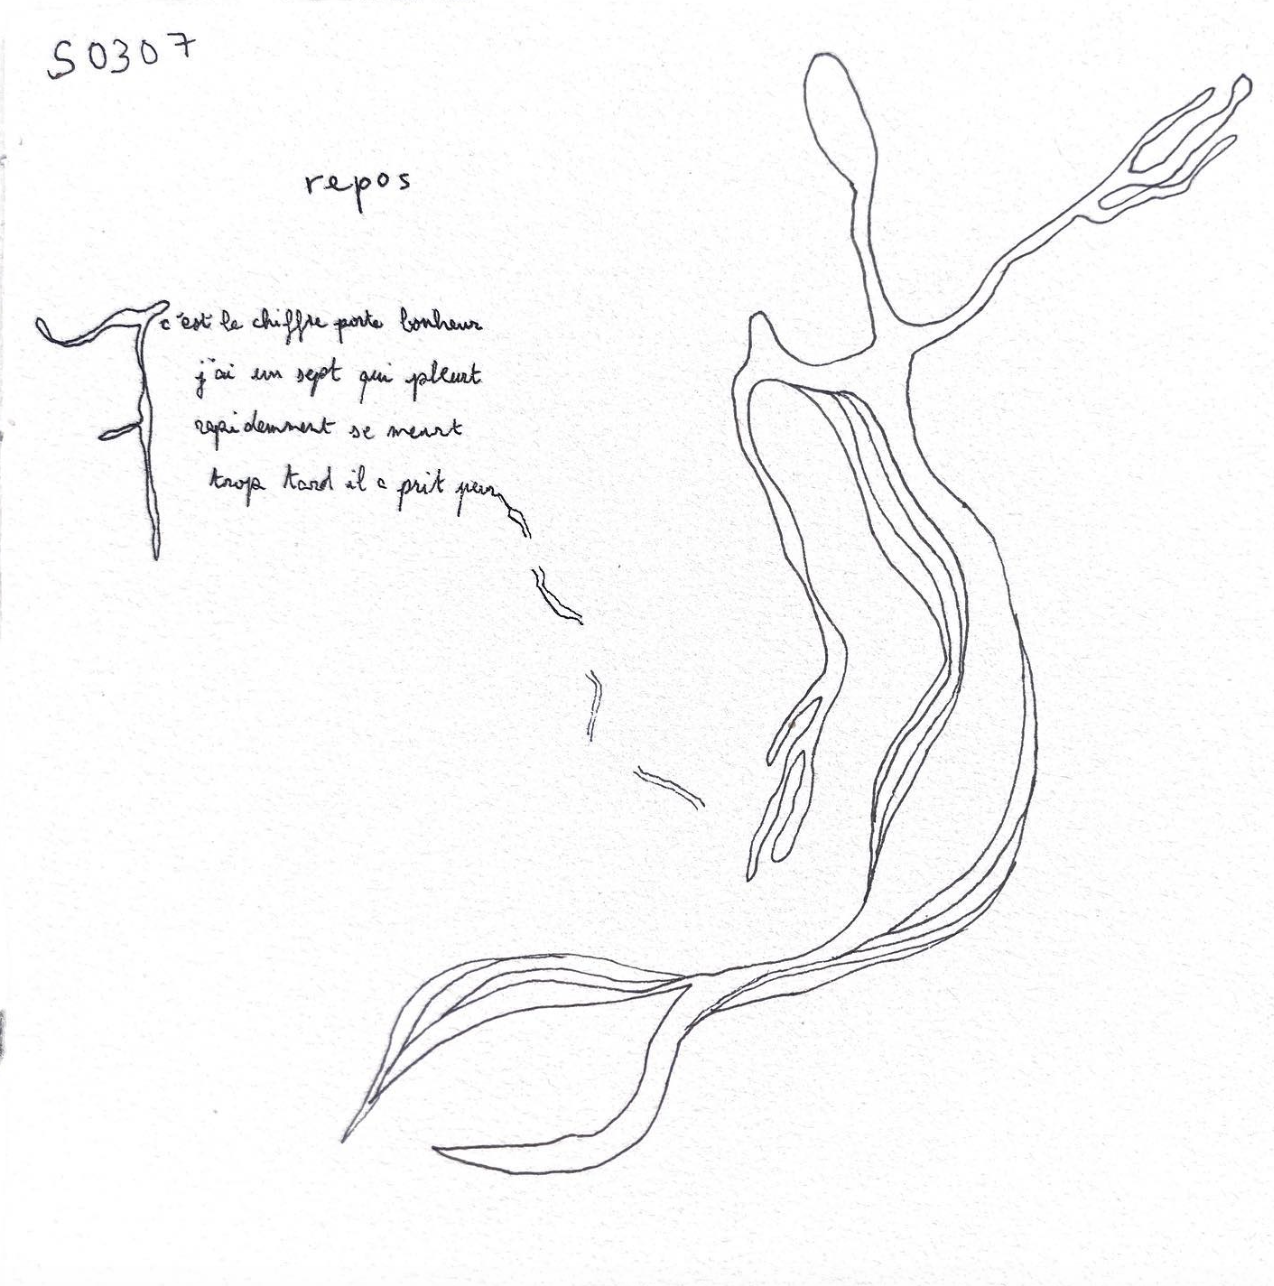 S0307
repos
7 c'est le chiffre porte bonheur
j'ai un sept qui pleurt
rapidemment se meurt
trop tard il a prit peur